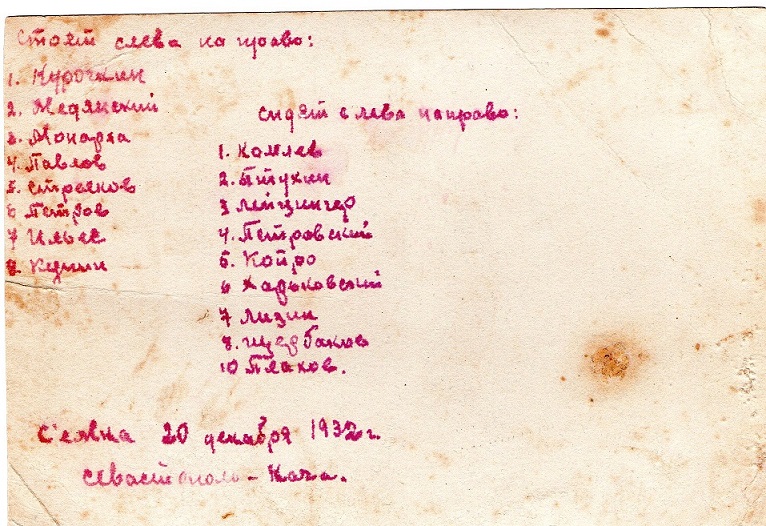 Стоят слева на право:
1. Курочкин
2. Медянский
3. Монарха
4. Павлов
5. Стрелков
6 Петров
7 Ильев
8. Кунин
сидят слева направо:
1. Комлев
2. Птухин
3 Лейцингер
4. Петровский
5. Койро
6 Харьковский
7 Лизин
8. Щербаков
10 Плахов.
С'емка 20 декабря 1932 г.
Севастополь - Кача.